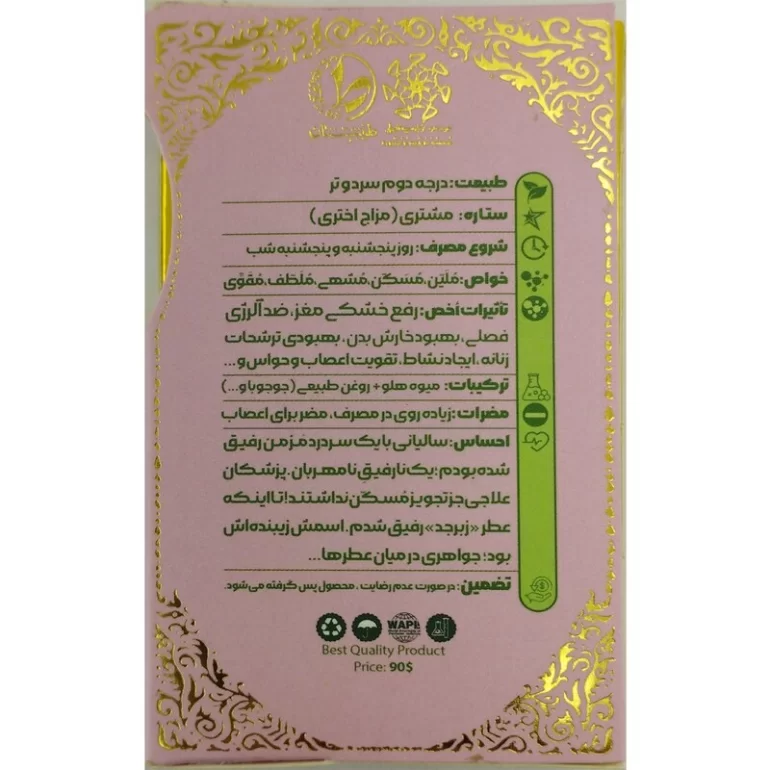 طبیعت: درجه دوم سرد و تر
ستاره: مشتری (مزاج اختری)
شروع مصرف: روز پنجشنبه و پنجشنبه شب
خواص: مُلَیّن، مُسَکّن، مُشهی، مُلَطّف، مُقَوّی
تأثیرات اَخص: رفع خشکی مغز، ضد آلرژی
فصلی، بهبود خارش بدن، بهبودی ترشحات
زنانه، ایجاد نشاط، تقویت اعصاب و حواس و...
ترکیبات: میوه هلو + روغن طبیعی (جوجوبا و...)
مضرات: زیاده روی در مصرف، مضر برای اعصاب
احساس: سالیانی با یک سردرد مُزمن رفیق
شده بودم؛ یک نارفیقِ نامهربان. پزشکان
علاجی جز تجویز مُسکّن نداشتند! تا اینکه
عطر «زبرجد» رفیق شدم. اسمش زیبنده‌اش
بود؛ جواهری در میان عطرها...
تضمین: در صورت عدم رضایت، محصول پس گرفته می‌شود.
WAPE
Best Quality Product
Price: 90$